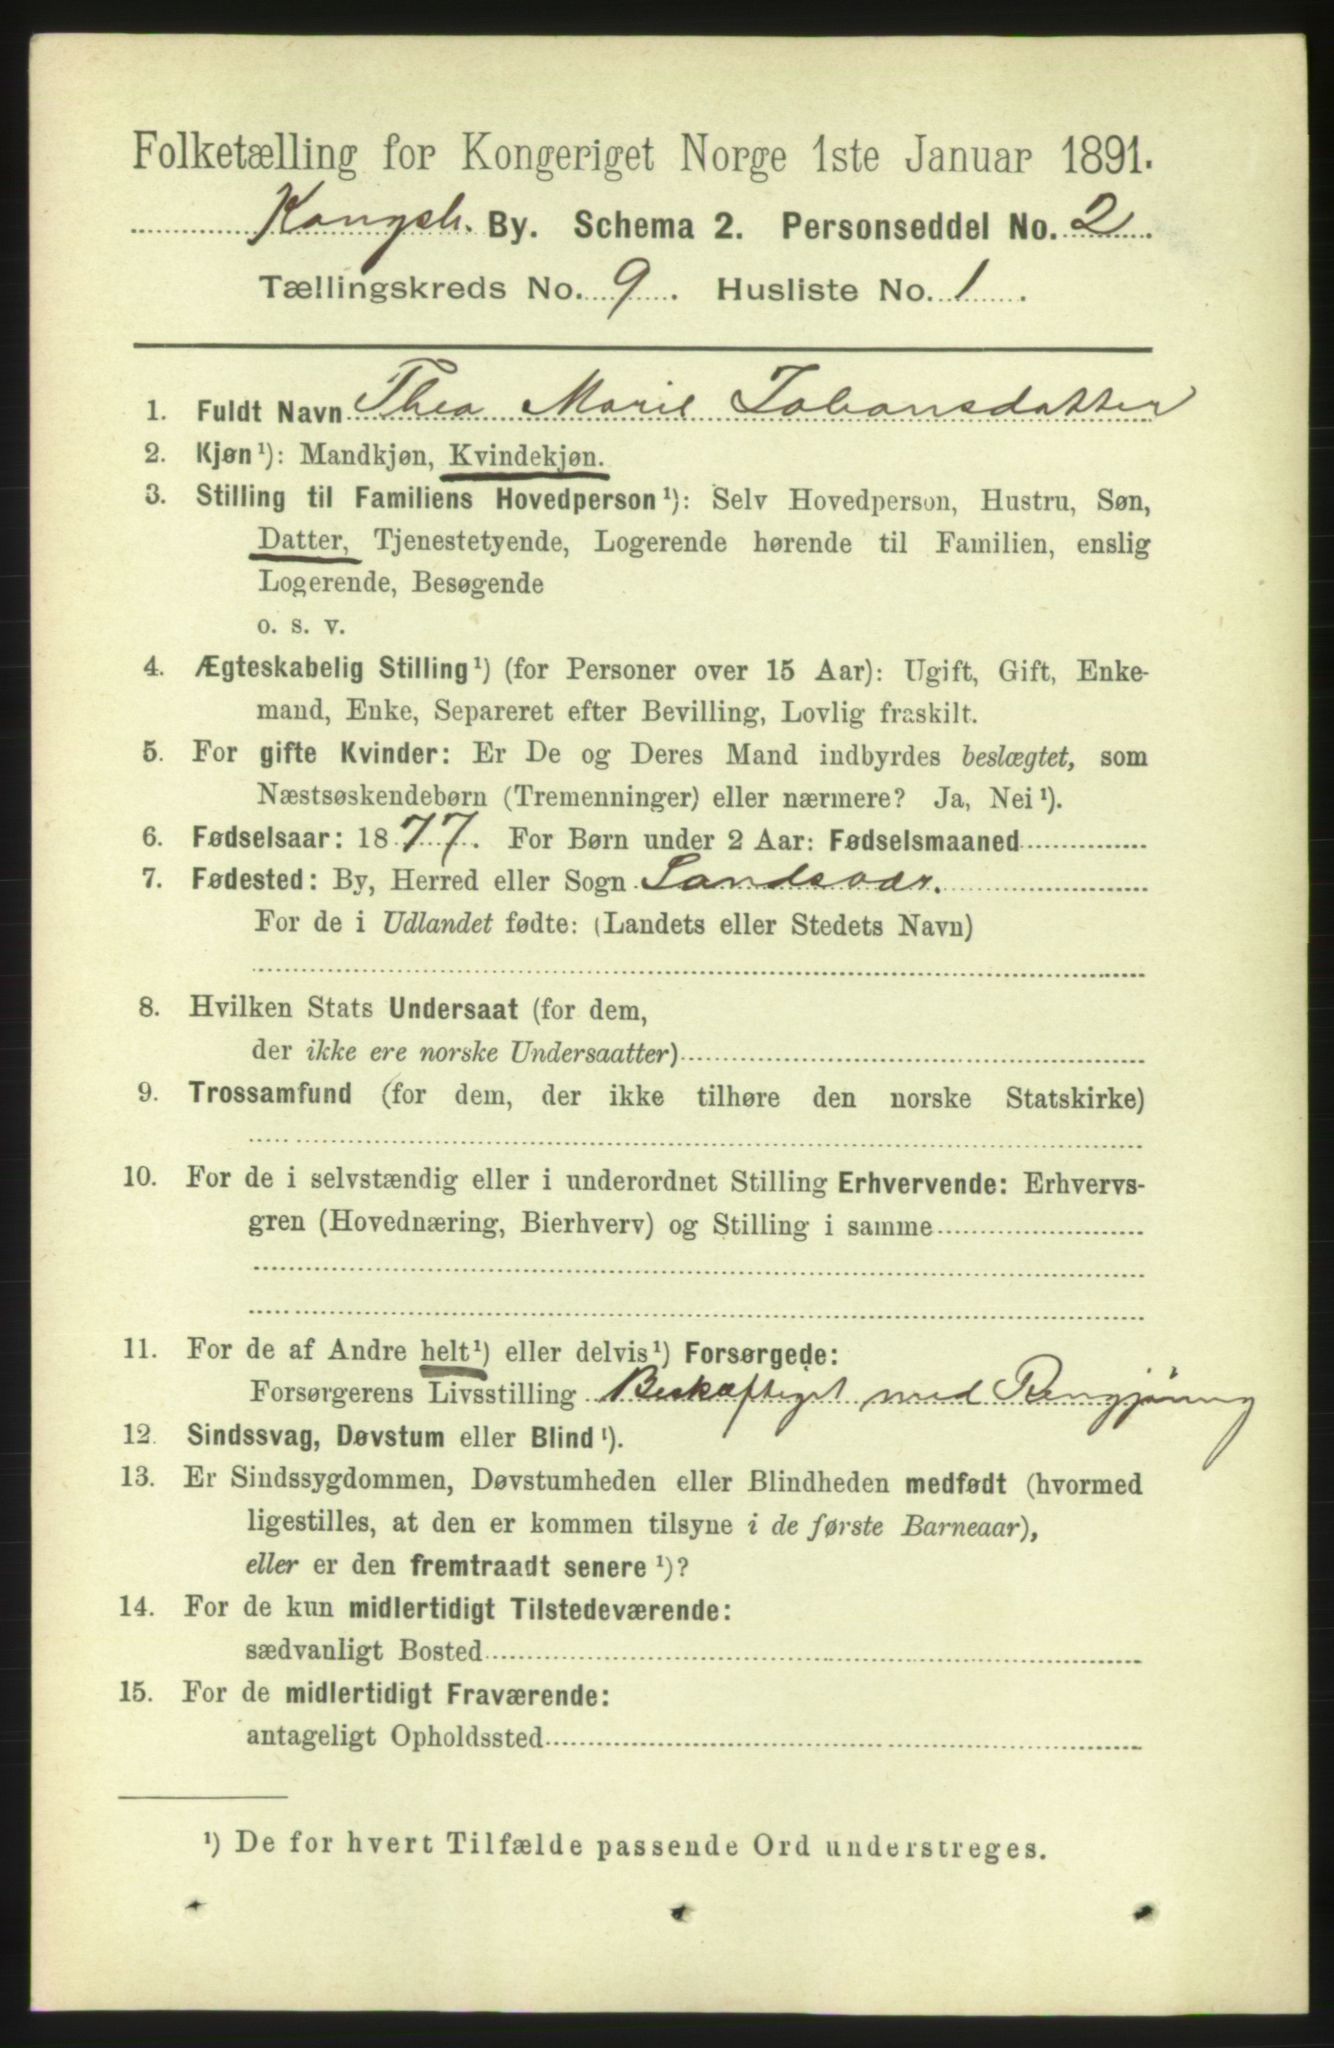 Folketælling for Kongeriget Norge 1ste Januar 1891.
Kongsb. By. Schema 2. Personseddel No. 2.
Tællingskreds No. 9. Husliste No. 1.
1. Fuldt Navn Thea Marie Johansdatter
2. Kjøn¹): Mandkjøn, Kvindekjøn.
3. Stilling til Familiens Hovedperson¹): Selv Hovedperson, Hustru, Søn,
Datter, Tjenestetyende, Logerende hørende til Familien, enslig
Logerende, Besøgende
o. s. v.
4. Ægteskabelig Stilling¹) (for Personer over 15 Aar): Ugift, Gift, Enke-
mand, Enke, Separeret efter Bevilling, Lovlig fraskilt.
5. For gifte Kvinder: Er De og Deres Mand indbyrdes beslægtet, som
Næstsøskendebørn (Tremenninger) eller nærmere? Ja, Nei¹).
6. Fødselsaar: 1877. For Børn under 2 Aar: Fødselsmaaned
7. Fødested: By, Herred eller Sogn Sandsvær.
For de i Udlandet fødte: (Landets eller Stedets Navn)
8. Hvilken Stats Undersaat (for dem,
der ikke ere norske Undersaatter)
9. Trossamfund (for dem, der ikke tilhøre den norske Statskirke)
10. For de i selvstændig eller i underordnet Stilling Erhvervende: Erhvervs-
gren (Hovednæring, Bierhverv) og Stilling i samme
11. For de af Andre helt¹) eller delvis¹) Forsørgede:
Forsørgerens Livsstilling Beskæftiget med Rengjøring
12. Sindssvag, Døvstum eller Blind¹).
13. Er Sindssygdommen, Døvstumheden eller Blindheden medfødt (hvormed
ligestilles, at den er kommen tilsyne i de første Barneaar),
eller er den fremtraadt senere¹)?
14. For de kun midlertidigt Tilstedeværende:
sædvanligt Bosted
15. For de midlertidigt Fraværende:
antageligt Opholdssted
¹) De for hvert Tilfælde passende Ord understreges.